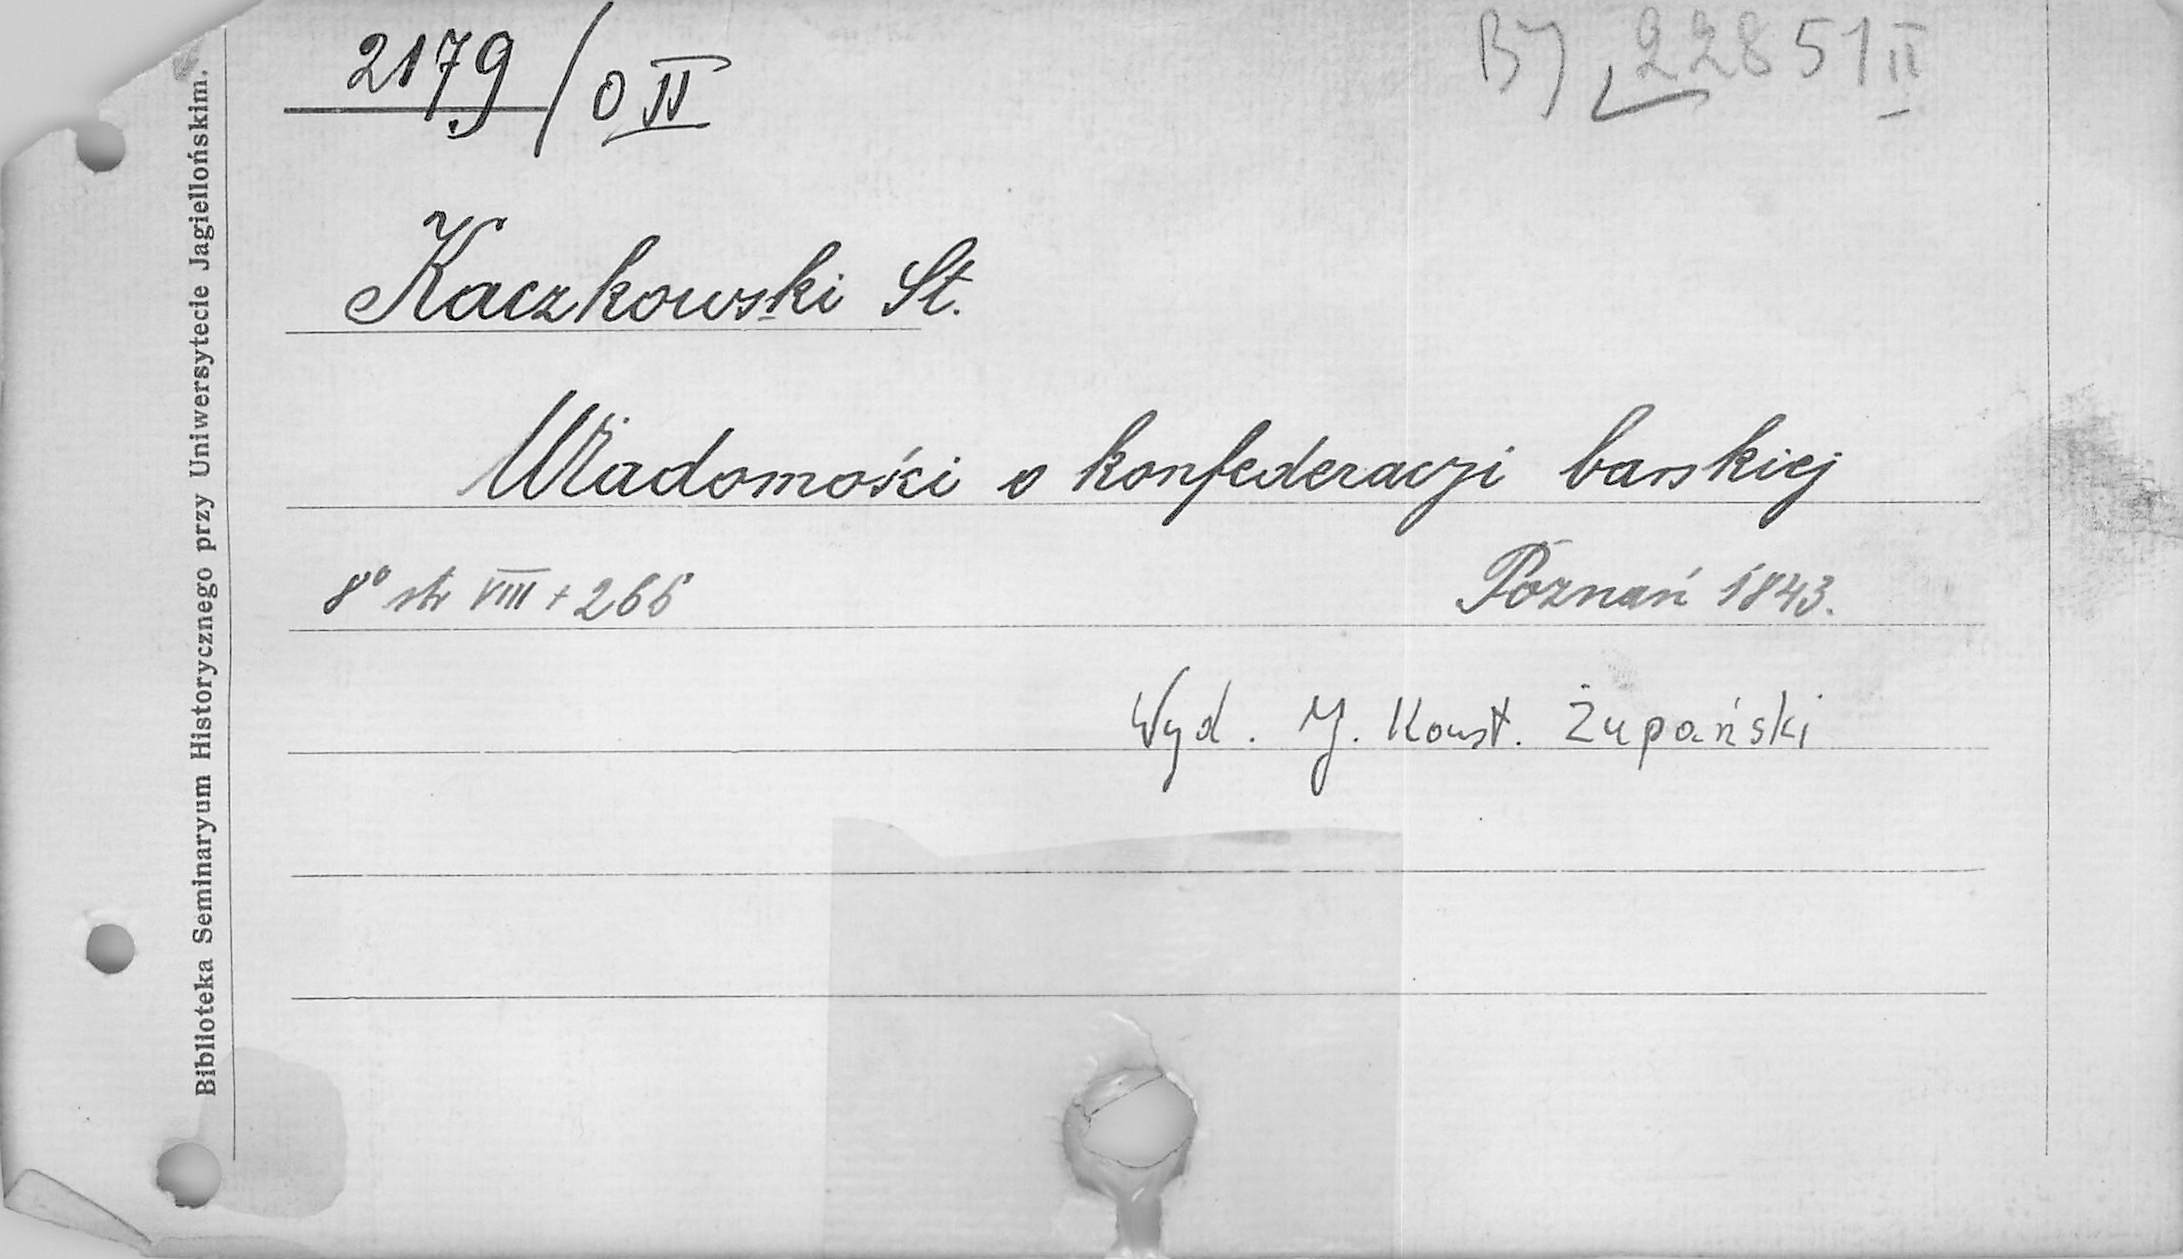 2179/O II
BJ 22851 II
Kaczkowski St.
Wiadomości o konfederacyi barskiej
8° str VIII + 266
Poznań 1843.
Wyd. J. Konst. Żupański
Biblioteka Seminaryum Historycznego przy Uniwersytecie Jagiellońskim.